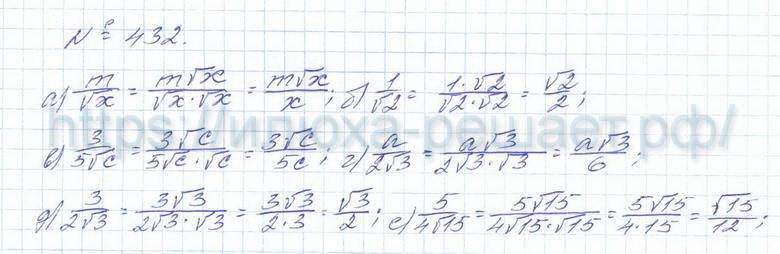 № 432.
а) m/√x = m√x/√x·√x = m√x/x; б) 1/√2 = 1·√2/√2·√2 = √2/2;
https://илюха-решает.рф/
в) 3/5√c = 3√c/5√c·√c = 3√c/5c; г) a/2√3 = a√3/2√3·√3 = a√3/6;
д) 3/2√3 = 3√3/2√3·√3 = 3√3/2·3 = √3/2; е) 5/4√15 = 5√15/4√15·√15 = 5√15/4·15 = √15/12;